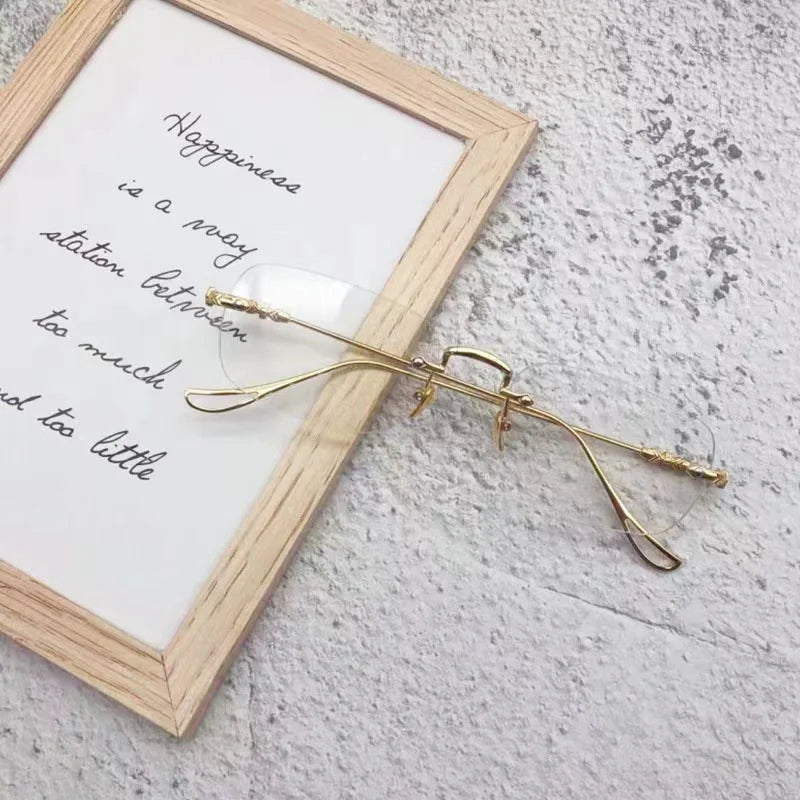 Happiness
is a way
station between
too much
nd too little